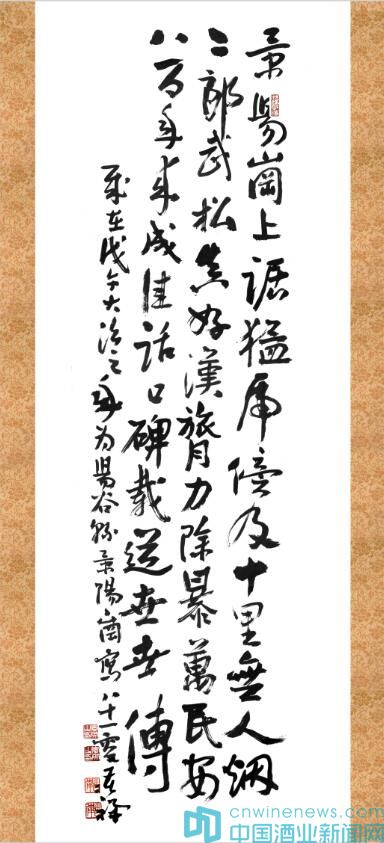 景陽崗上踞猛虎傍及十里無人烟
二郎武松真好漢膂力除暴萬民安
八百年來成佳話口碑載道世世傳
歲在戊午大治之年為陽谷縣景陽崗寫八十一零
cnwinenews.com
中国酒业新闻网